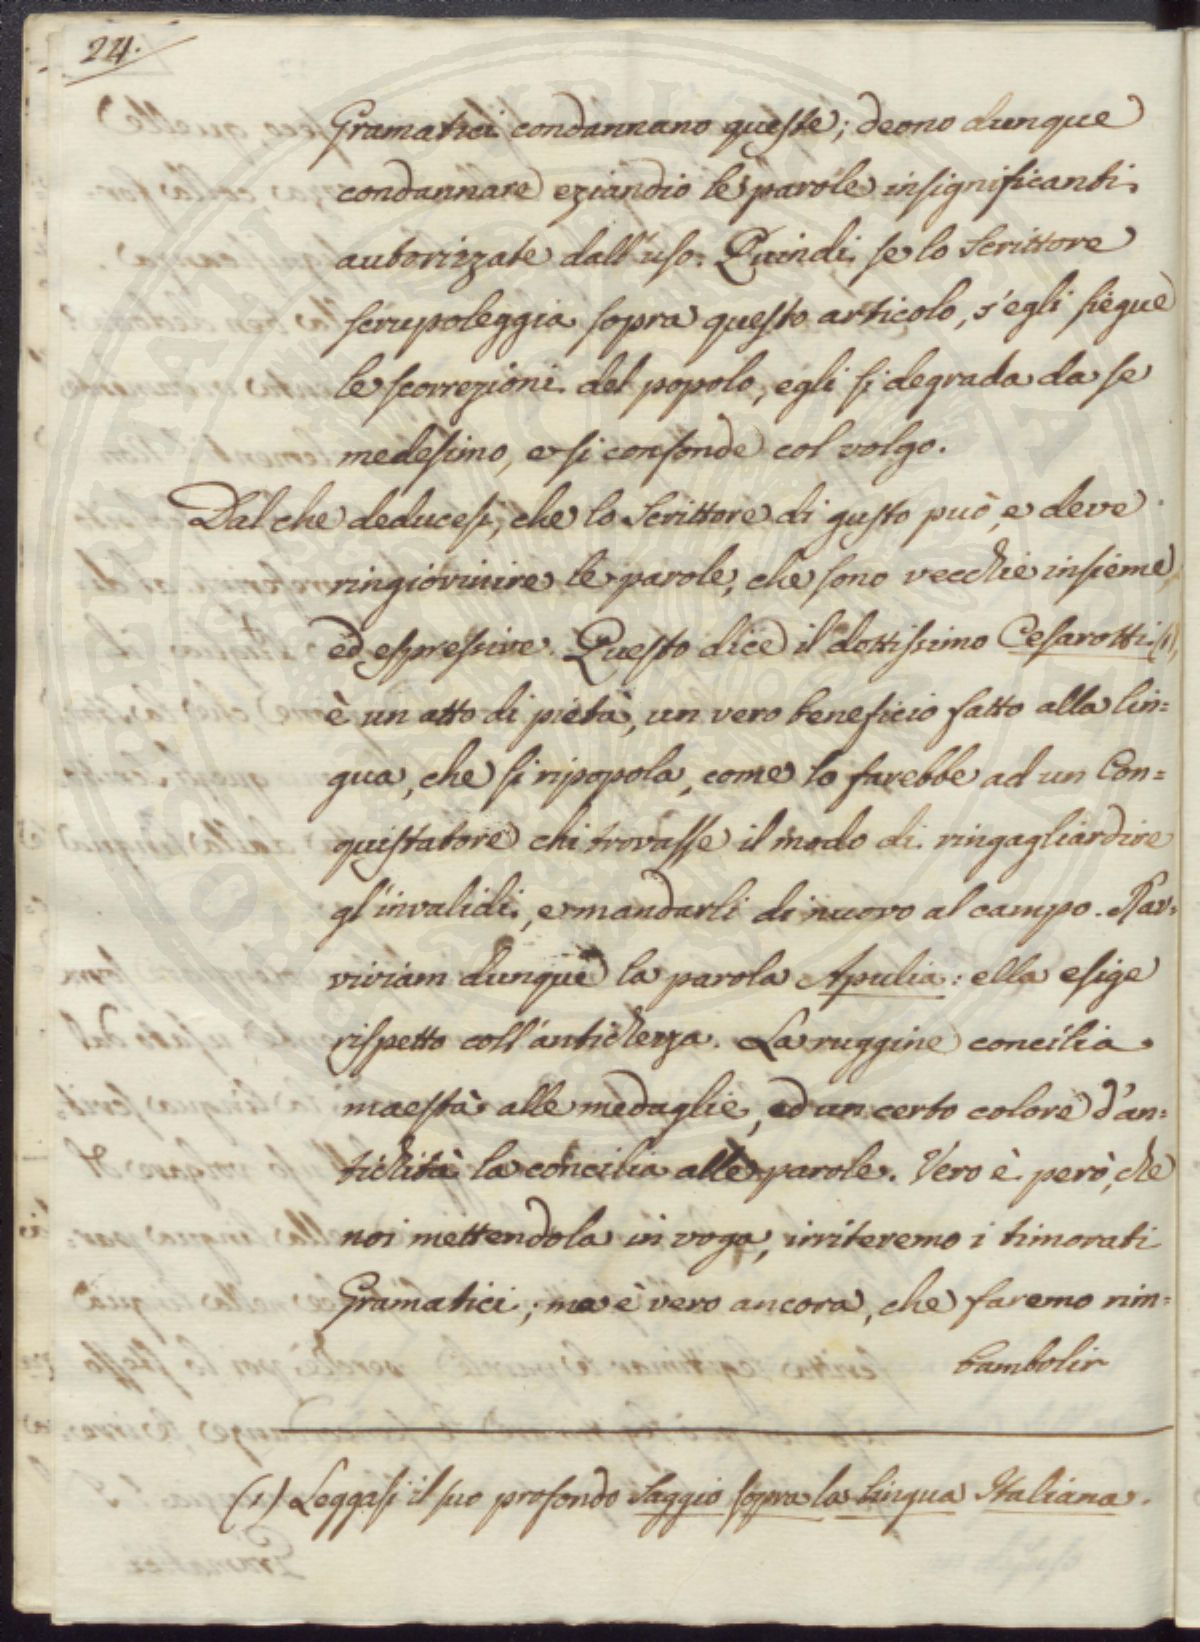 24.
Gramatici condannano queste; deono dunque
condannare eziandio le parole insignificanti
autorizzate dall'uso. Quindi se lo Scrittore
scrupoleggia sopra questo articolo, s'egli siegue
le scorrezioni del popolo, egli si degrada da se
medesimo, e si confonde col volgo.
Dal che deducesi, che lo Scrittore di gusto può, e deve
ringiovinire le parole, che sono vecchie insieme,
ed espressive. Questo dice il dottissimo Cesarotti (1),
è un atto di pietà, un vero beneficio fatto alla lin=
gua, che si ripopola, come lo farebbe ad un Con=
quistatore chi trovasse il modo di ringagliardire
gl'invalidi, e mandarli di nuovo al campo. Rav=
viviam dunque la parola Apulia: ella esige
rispetto coll'antichezza. La ruggine concilia
maestà alle medaglie, ed un certo colore d'an=
tichità la concilia alle parole. Vero è però, che
noi mettendola in voga, irriteremo i timorati
Gramatici; ma è vero ancora, che faremo rim=
bambolir
(1) Leggasi il suo profondo Saggio sopra la Lingua Italiana.